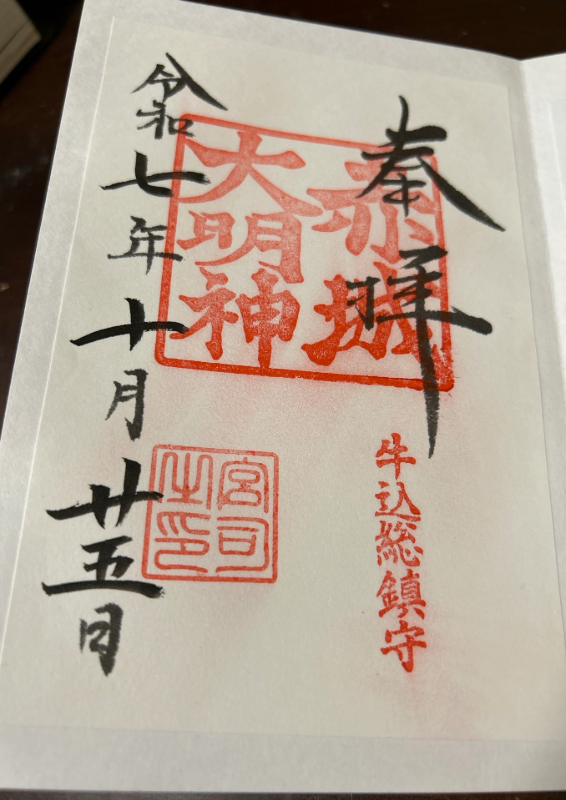 奉拝
赤城
大明神
牛込総鎮守
宮司
之印
令和七年十月廿五日